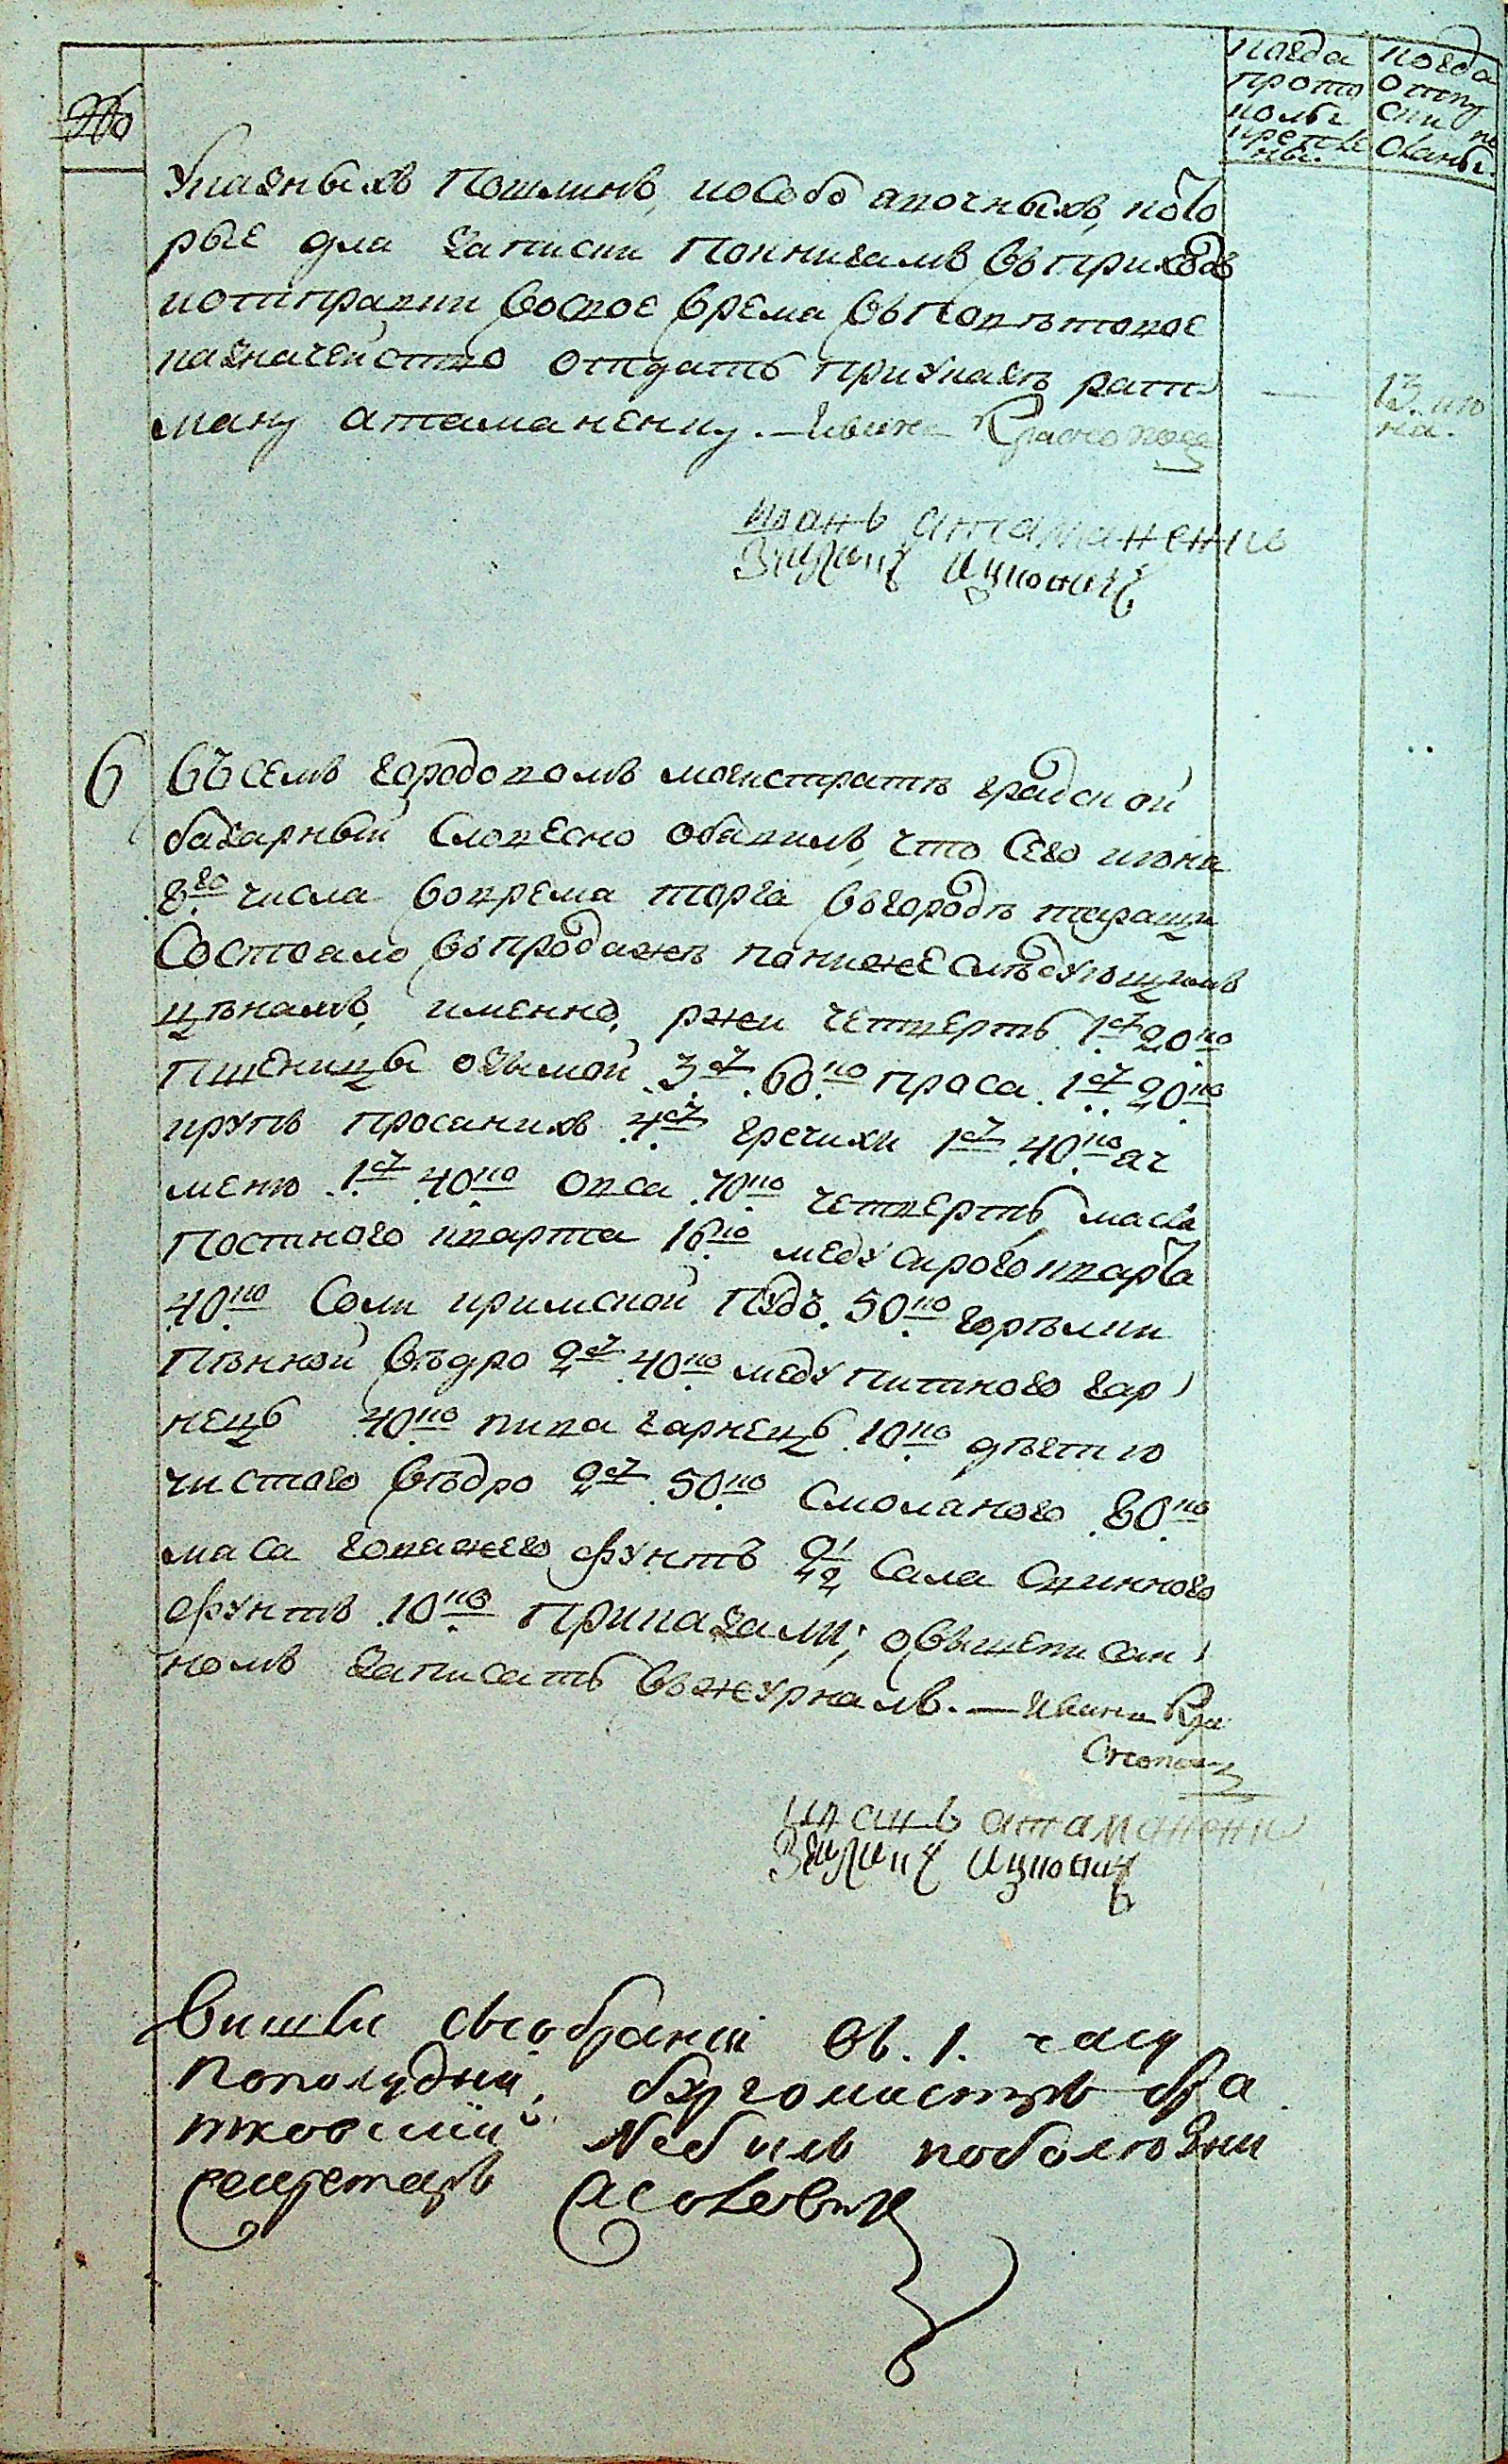 №
когда прото
колы
крепле
ны.
когда отпу
ски пи
саны.
указныхъ пошлинъ, иособо акточныхъ, кото
рые для записки покнигамъ въприходъ
иотправки восвое время въповѣтовое
казначейство отдать приуказѣ рат
ману атаманенку. — Иванъ Краснопол
13. ию
ня.
иванъ атаманенко
6
Въ семъ городовомъ магистратѣ градской
базарный словесно обявилъ, что сего июня
8го числа вовремя торга въгородѣ таращи
состояло въпродажѣ понижеслѣдующимъ
цѣнамъ, именно, ржи четверть 1р 20ко
пшеницы озымой 3р 60ко проса 1р 20ко
крупъ просяныхъ 4р гречихи 1р 40ко яч
меню 1р 40ко овса 70ко четверть, масла
постного кварта 16ко меду сирого кварта
40ко соли кримской пудъ 50ко горѣлки
пѣнной вѣдро 2р 40ко меду питного гар
нецъ 40ко пива гарнецъ 10ко дѣгтю
чистого вѣдро 2р 50ко смоляного 80ко
мяса говяжего фунтъ 2½ сала свинного
фунтъ 10ко приказали; овышеписан
номъ записать въжурналъ. — Иванъ Кра
снопол
иванъ атаманенко
Вишли съсобрания въ. 1. часу
пополудни, бургомистръ бра
тковский небилъ поболѣзни
секретарь Сасовович